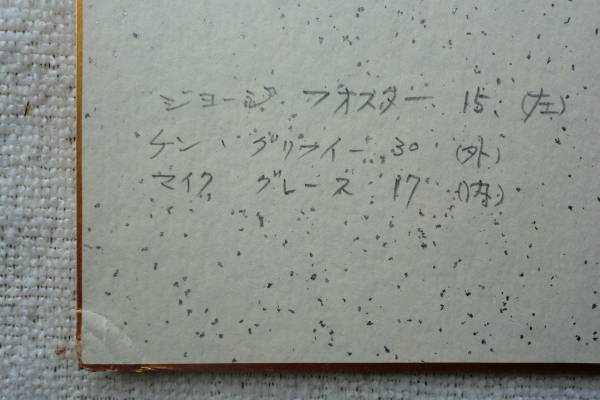 ジョージ フォスター 15 (左)
ケン、グリフィー 30 (外)
マイク グレース 17 (内)